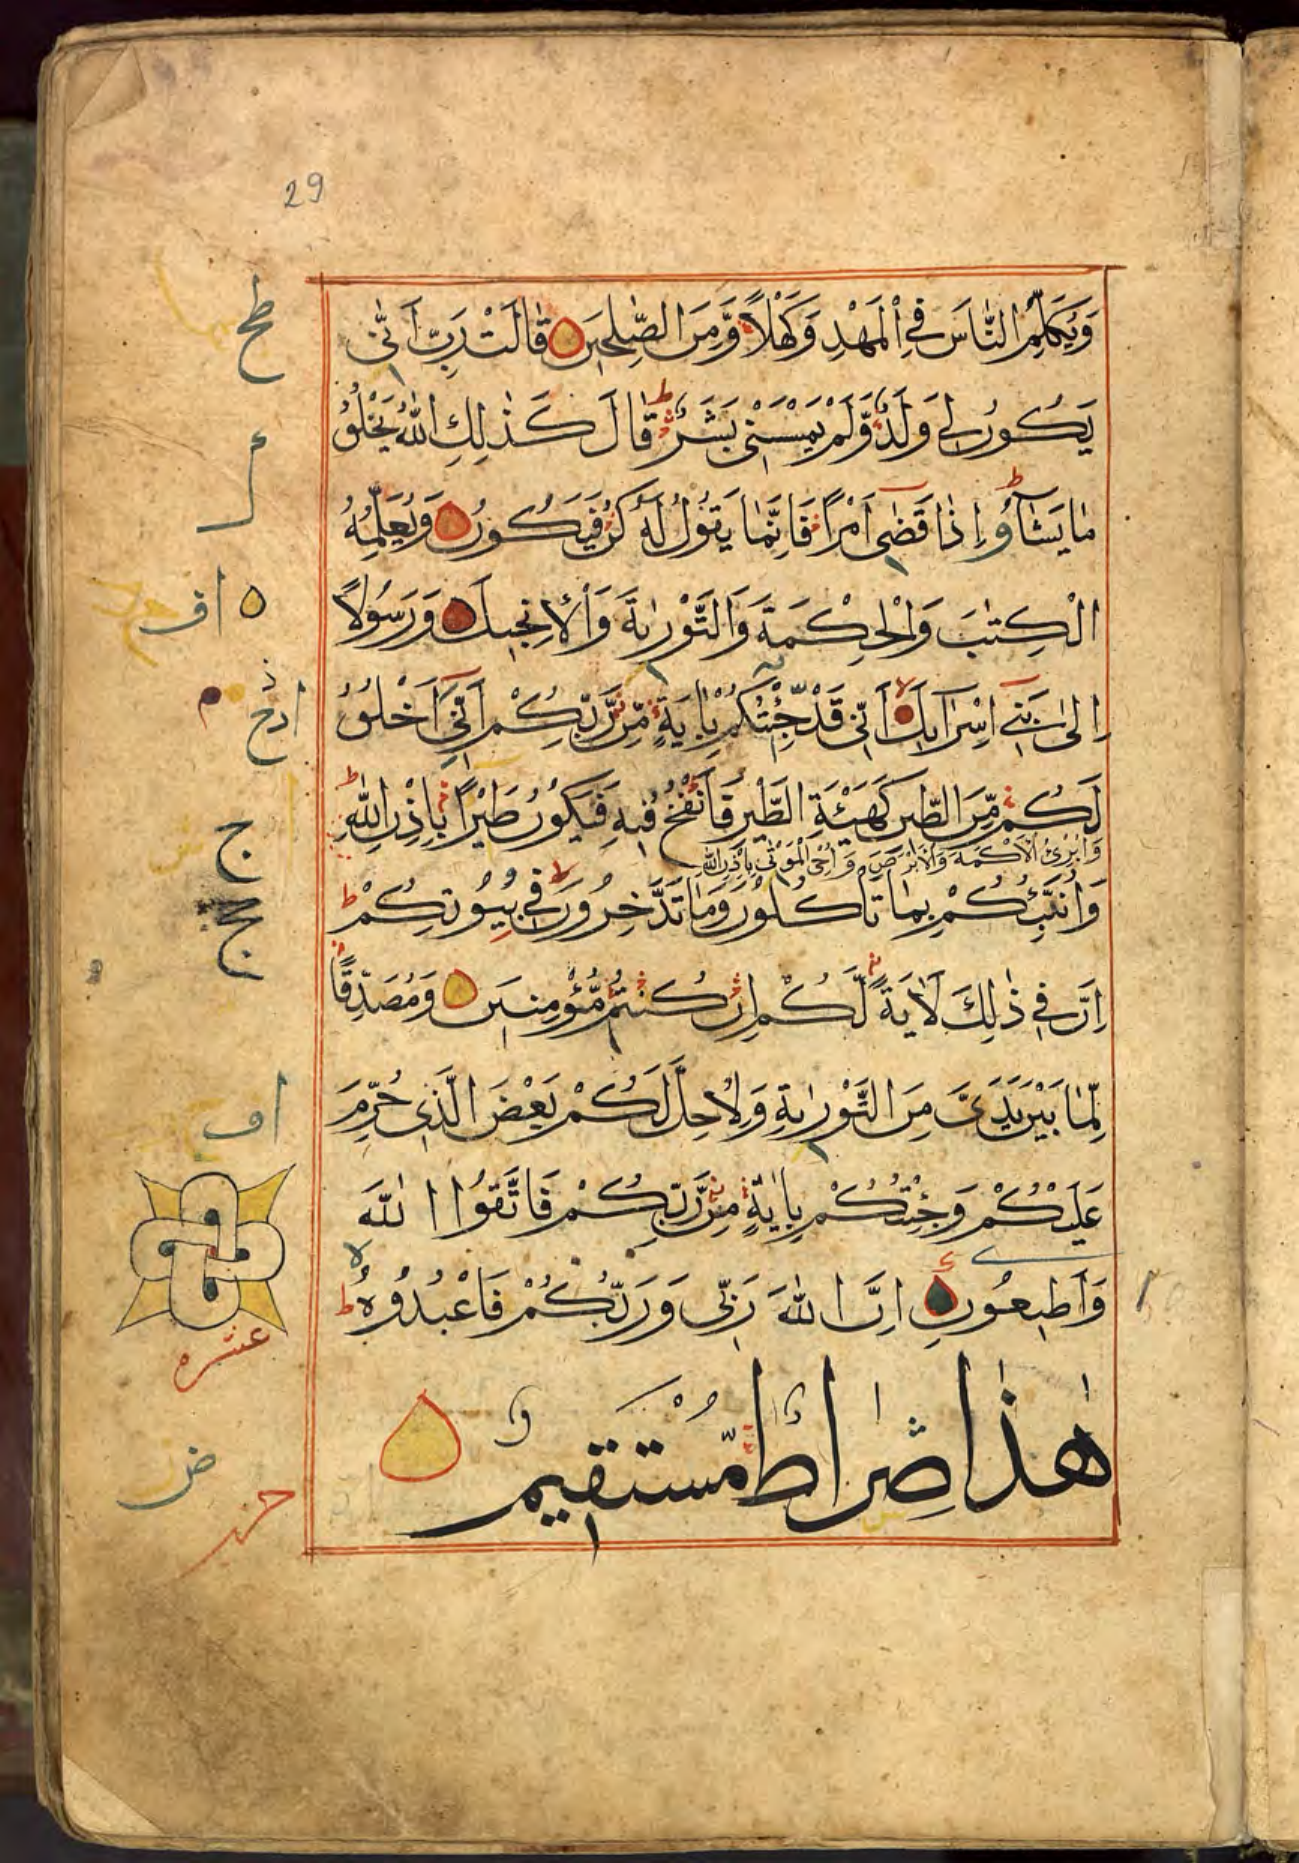 29
وَيُكَلِّمُ النَّاسَ فِي الْمَهْدِ وَكَهْلًا وَّمِنَ الصّٰلِحِينَ قَالَتْ رَبِّ اَنّٰى
يَكُونُ لِي وَلَدٌ وَّلَمْ يَمْسَسْنِي بَشَرٌ قَالَ كَذٰلِكِ اللّٰهُ يَخْلُقُ
مَا يَشَآءُ اِذَا قَضٰى اَمْرًا فَاِنَّمَا يَقُولُ لَهُ كُنْ فَيَكُونُ وَيُعَلِّمُهُ
الْكِتٰبَ وَالْحِكْمَةَ وَالتَّوْرٰيةَ وَالْاِنْجِيلَ وَرَسُولًا
اِلٰى بَنِي اِسْرَآئِيلَ اَنِّي قَدْ جِئْتُكُمْ بِاٰيَةٍ مِّنْ رَّبِّكُمْ اَنِّي اَخْلُقُ
لَكُمْ مِّنَ الطِّينِ كَهَيْئَةِ الطَّيْرِ فَاَنْفُخُ فِيهِ فَيَكُونُ طَيْرًا بِاِذْنِ اللّٰهِ
وَاُبْرِئُ الْاَكْمَهَ وَالْاَبْرَصَ وَاُحْيِ الْمَوْتٰى بِاِذْنِ اللّٰهِ
وَاُنَبِّئُكُمْ بِمَا تَأْكُلُونَ وَمَا تَدَّخِرُونَ فِي بُيُوتِكُمْ
اِنَّ فِي ذٰلِكَ لَاٰيَةً لَّكُمْ اِنْ كُنْتُمْ مُّؤْمِنِينَ وَمُصَدِّقًا
لِّمَا بَيْنَ يَدَيَّ مِنَ التَّوْرٰيةِ وَلِاُحِلَّ لَكُمْ بَعْضَ الَّذِي حُرِّمَ
عَلَيْكُمْ وَجِئْتُكُمْ بِاٰيَةٍ مِّنْ رَّبِّكُمْ فَاتَّقُوا اللّٰهَ
وَاَطِيعُونِ اِنَّ اللّٰهَ رَبِّي وَرَبُّكُمْ فَاعْبُدُوهُ
هٰذَا صِرَاطٌ مُّسْتَقِيمٌ
عشره